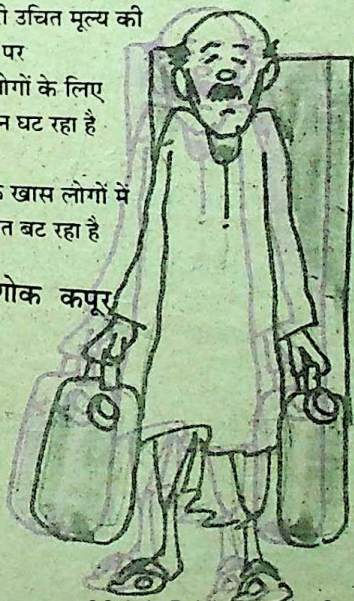 ी उचित मूल्य की
पर
ोगों के लिए
न घट रहा है
खास लोगों में
त बट रहा है
ोक कपूर